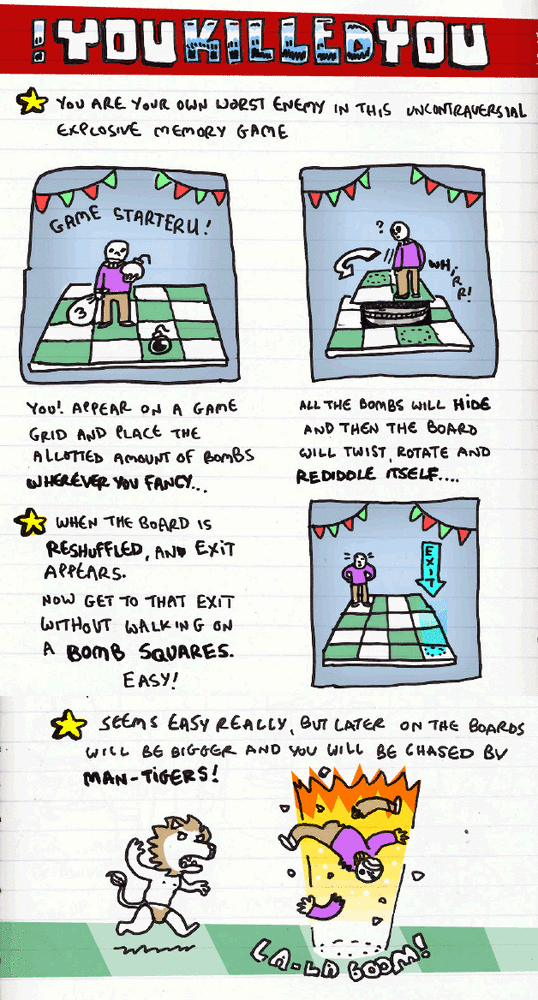 !YOUKILLEDYOU
YOU ARE YOUR OWN WORST ENEMY IN THIS UNCONTRAVERSIAL
EXPLOSIVE MEMORY GAME
GAME STARTERU!
3
YOU! APPEAR ON A GAME
GRID AND PLACE THE
ALLOTTED AMOUNT OF BOMBS
WHEREVER YOU FANCY...
?
WHIRR!
ALL THE BOMBS WILL HIDE
AND THEN THE BOARD
WILL TWIST, ROTATE AND
REDIDDLE ITSELF....
WHEN THE BOARD IS
RESHUFFLED, AND EXIT
APPEARS.
NOW GET TO THAT EXIT
WITHOUT WALKING ON
A BOMB SQUARES.
EASY!
EXIT
SEEMS EASY REALLY, BUT LATER ON THE BOARDS
WILL BE BIGGER AND YOU WILL BE CHASED BY
MAN-TIGERS!
LA-LA BOOM!